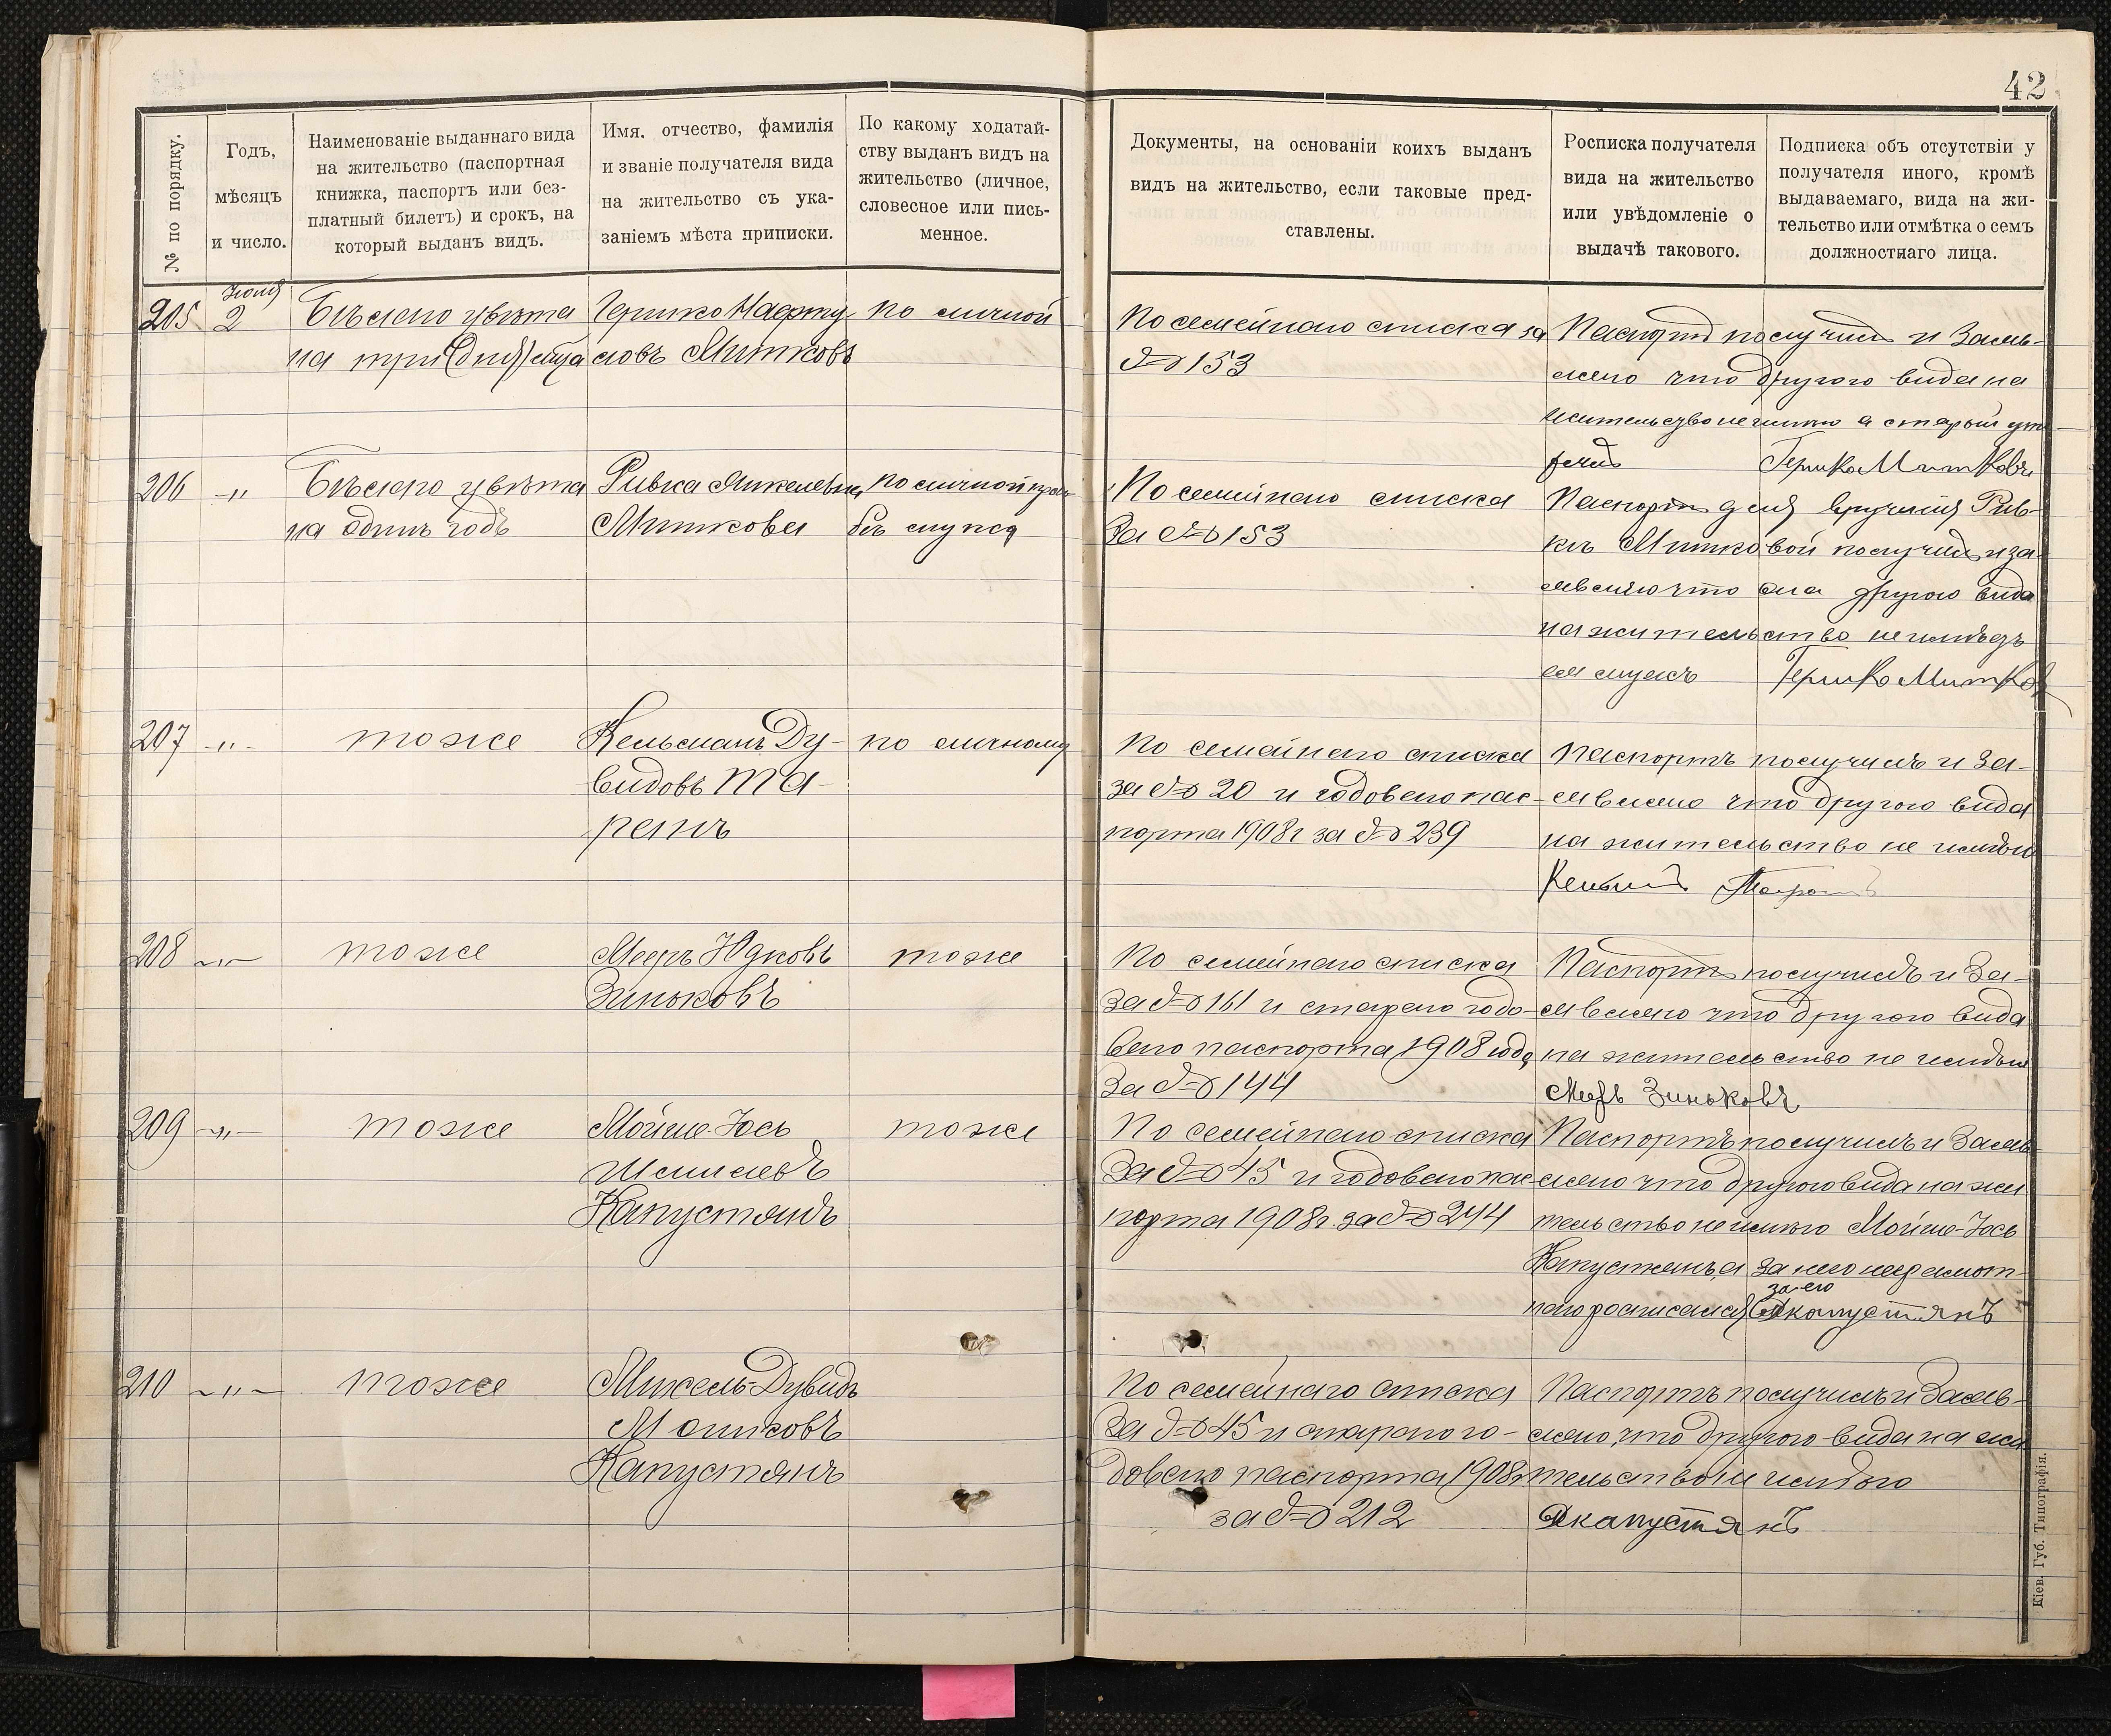 42
№ по порядку.
Годъ,
мѣсяцъ
и число.
Наименованіе выданнаго вида
на жительство (паспортная
книжка, паспортъ или без-
платный билетъ) и срокъ, на
который выданъ видъ.
Имя, отчество, фамилія
и званіе получателя вида
на жительство съ ука-
заніемъ мѣста приписки.
По какому ходатай-
ству выданъ видъ на
жительство (личное,
словесное или пись-
менное.
Документы, на основаніи коихъ выданъ
видъ на жительство, если таковые пред-
ставлены.
Росписка получателя
вида на жительство
или увѣдомленіе о
выдачѣ такового.
Подписка объ отсутствіи у
получателя иного, кромѣ
выдаваемаго, вида на жи-
тельство или отмѣтка о семъ
должностнаго лица.
205
2
Бѣлаго цвѣта
на три (дня)
Гершко Нафту
ловъ Митковъ
по личной
По семейнаго списка за
№ 153
Паспортъ получилъ и заяв-
ляю что другого вида на
жительство не имѣю а старый уте
рялъ Гершко Митковъ
206 -"-
Бѣлаго цвѣта
на одинъ годъ
Ривка
Миткова
по личной
бѣ мужа
По семейнаго списка
За № 153
Паспортъ для врученія Рив-
кѣ Митковой получилъ и за-
являю что она другого вида
на жительство не имѣетъ
ея мужъ Гершко Митков
207 -"-
тоже
Кельманъ Ду-
видовъ Та-
ранъ
по личному
По семейнаго списка
за № 20 и годоваго пас-
порта 1908 г за № 239
Паспортъ получилъ и за-
являю что другого вида
на жительство не имѣю
208 -"-
тоже
Мееръ Юдковъ
Зиньковъ
тоже
По семейнаго списка
За № 161 и стараго годо-
ваго паспорта 1908 года
За № 144
Паспортъ получилъ и за-
являю что другого вида
на жительство не имѣю
Меръ Зиньковъ
209 -"-
тоже
Мойше-Іось
Капустянъ
тоже
По семейнаго списка
За № 45 и годоваго пас
порта 1908 г. за № 244
Паспортъ получилъ и заяв
ляю что другого вида на жи
тельство не имѣю Мойше-Іось
Капустянъ, а за него неграмот-
за его
наго росписался Дкапустянъ
210 -"-
тоже
Микель-Дувидъ
Мошковъ
Капустянъ
По семейнаго списка
За № 45 и стараго го-
доваго паспорта 1908 г
за № 212
Паспортъ получилъ и заяв-
ляю, что другого вида на жи
тельство не имѣю
Дкапустянъ
Кіев. Губ. Типографія.